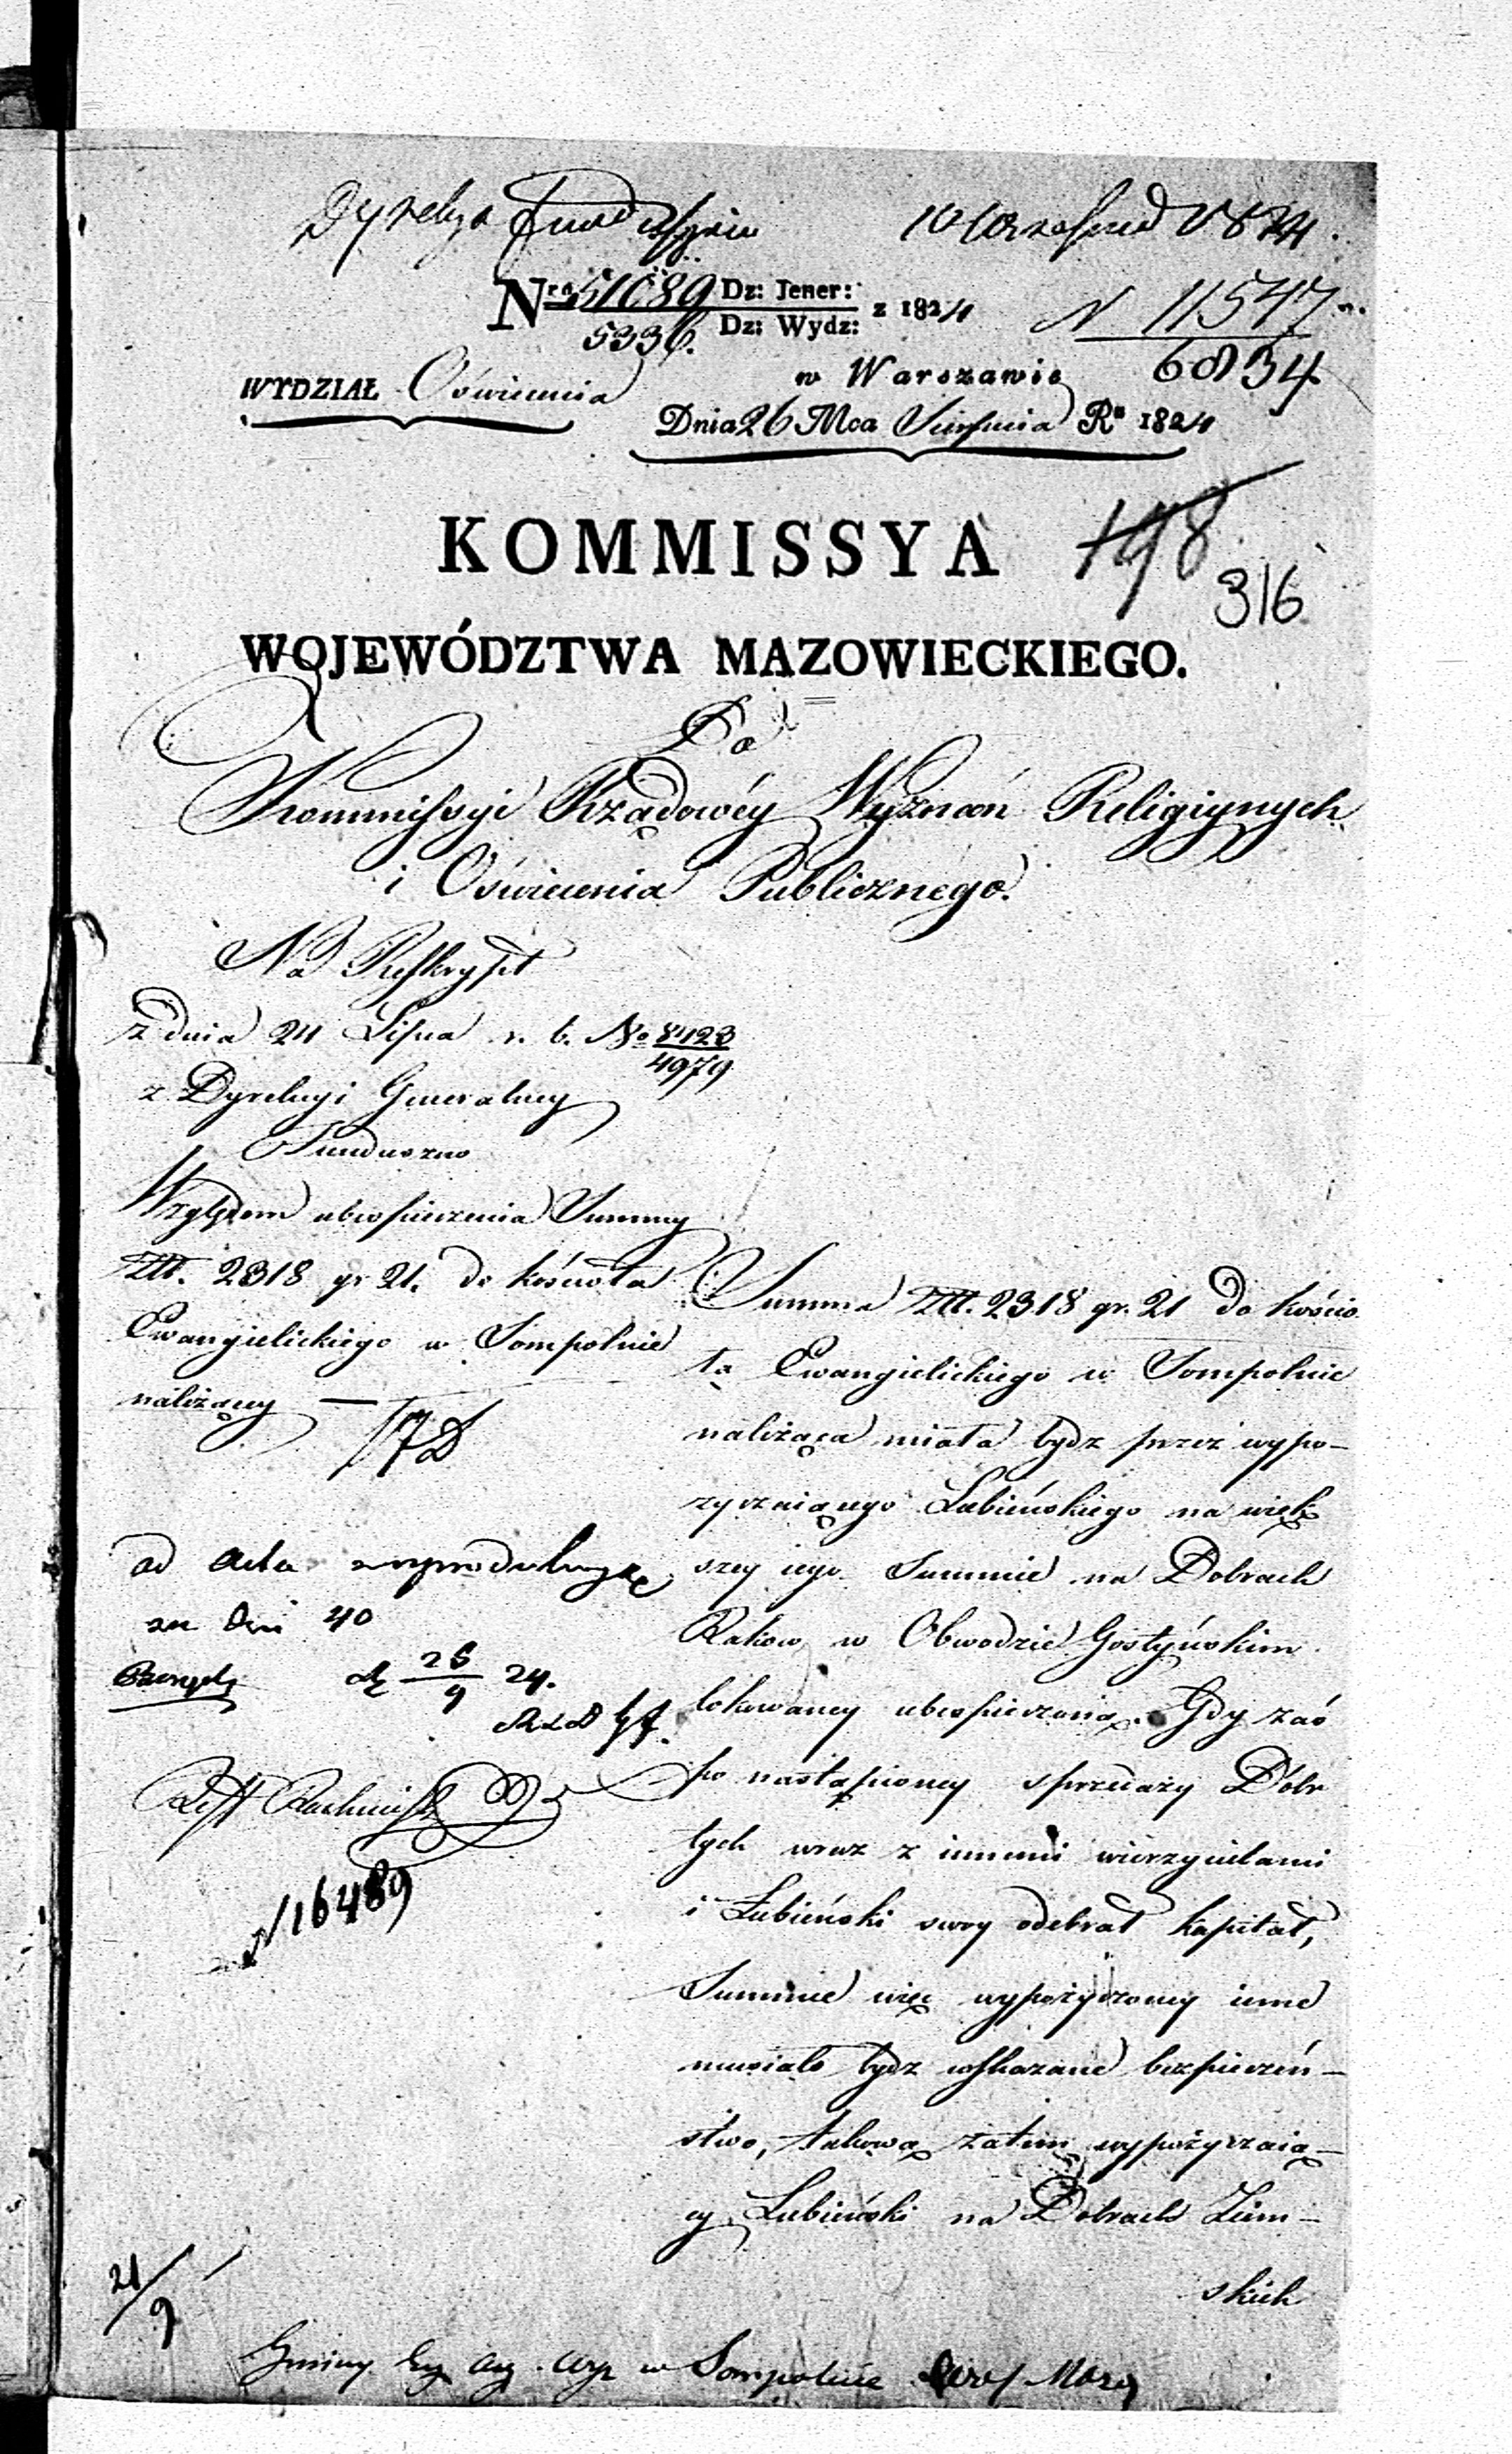 Dyrekcya Funduszów
10 Września 1824.
Nro 51089 Dz: Jener: z 1824
5336. Dz: Wydz:
N 11547
6834
WYDZIAŁ Oświecenia
w Warszawie
Dnia 26 Mca Sierpnia Ru 1824
KOMMISSYA
198
316
WOJEWÓDZTWA MAZOWIECKIEGO.
Do
Kommissyi Rządowéy Wyznań Religiynych
i Oświecenia Publicznégo.
Na Reskrypt
z dnia 24 Lipca r. b. No 8423
4979
z Dyrekcyi Generalney
Funduszów
Względem ubespieczenia Summy
Złł. 2318 gr 21. do kościoła
Ewangielickiego w Sompolnie
należący —
ad acta
za dni 40
25
9 24.
N 16489
Summa Złł. 2318 gr. 21 do kościo
ła Ewangielickiego w Sompolnie
należąca miała bydz przez wypo-
zyczaiącego Łubieńskiego na więk
szey iego Summie na Dobrach
Rakow w Obwodzie Gostyńskim
lokowaney ubespieczoną. Gdy zaś
po nastąpioney sprzedaży Dóbr
tych wraz z innemi wierzycielami
i Łubieński swoy odebrał kapitał,
Summie więc wypożyczoney inne
musiało bydz wskazane bezpieczeń-
stwo, takową zatem wypożyczaią-
cy Łubieński na Dobrach Zim-
skich
21/9
Gminy Ew. Aug. Wyz w Sompolnie Woj Mazo